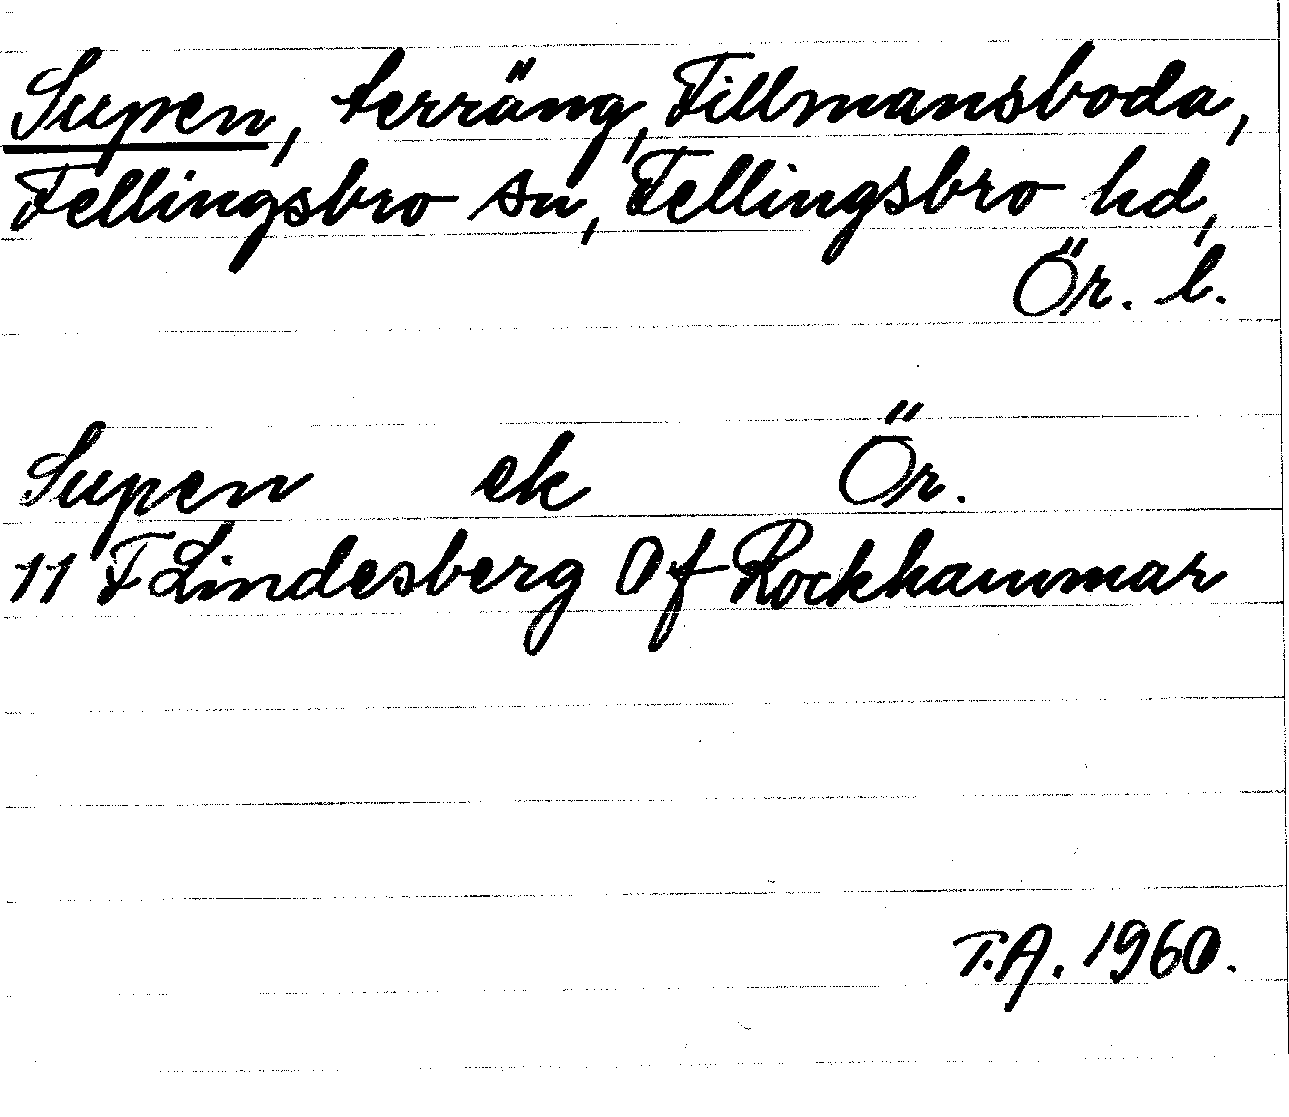 Supen, terräng, Fillmansboda,
Fellingsbro sn, Fellingsbro hd,
Ör. l.
Supen ek Ör.
11 F Lindesberg Of Rockhammar
T.A. 1960.